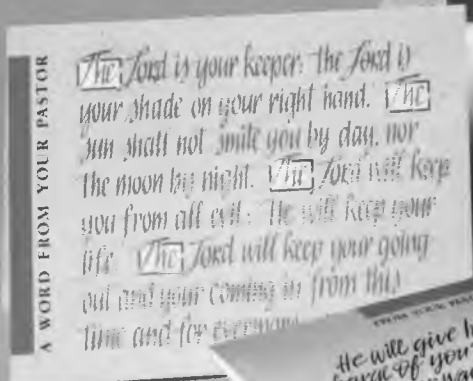 A WORD FROM YOUR PASTOR
The Lord is your keeper: the Lord is
your shade on your right hand. The
sun shall not smite you by day, nor
the moon by night. The Lord will keep
you from all evil: He will keep your
life. The Lord will keep your going
out and your coming in from this
time and for evermore
FROM YOUR
He will give
charge of you